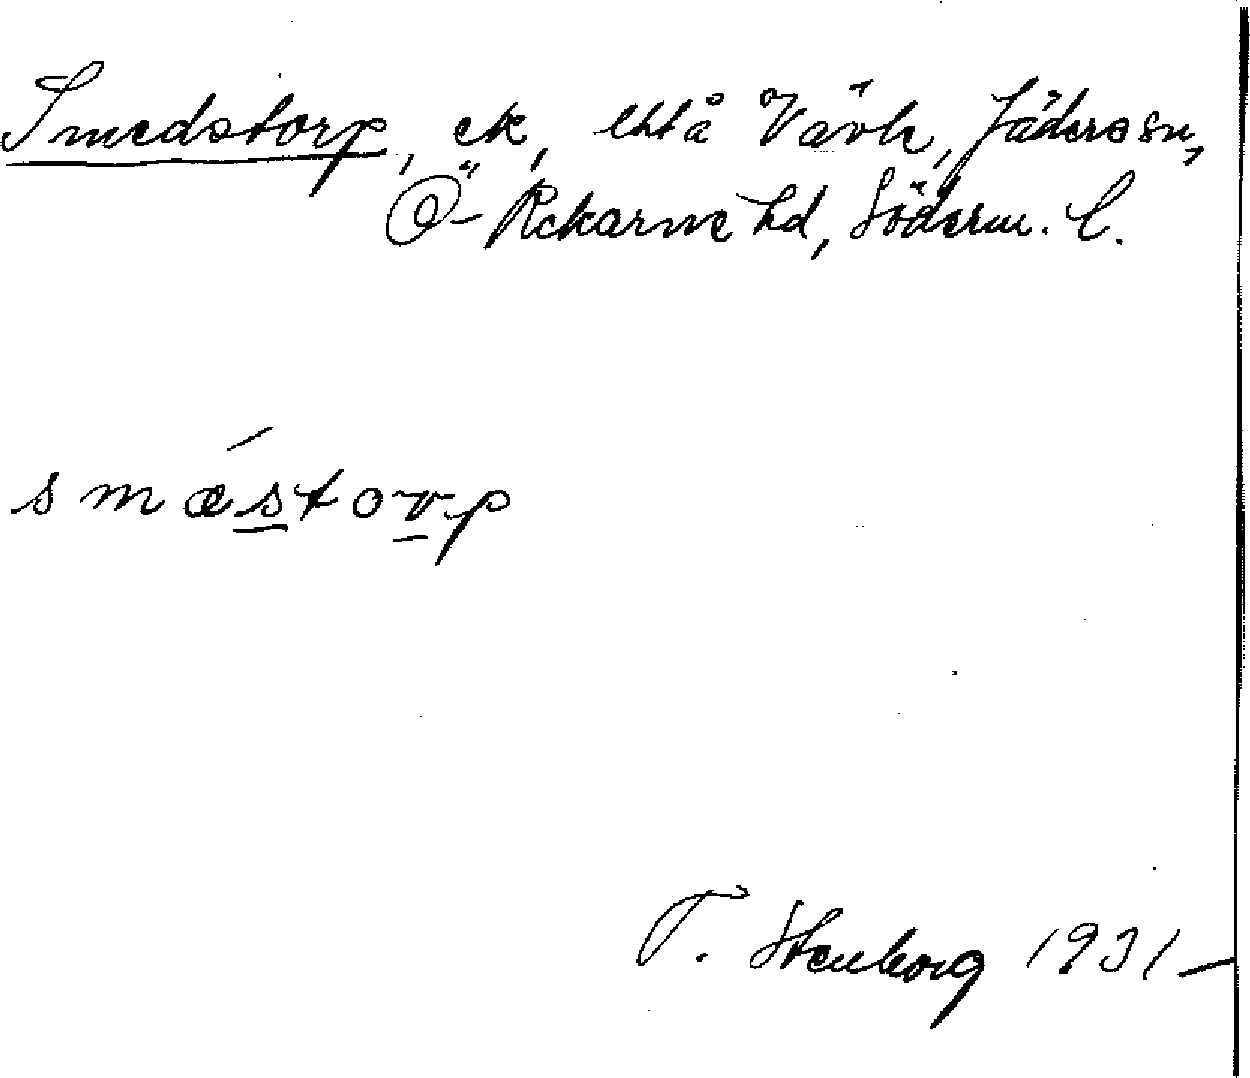 Smedstorp, ek, Jäders sn,
Ö-Rekarne hd, Söderm. l.
smæstorp
T. Stenborg 1931